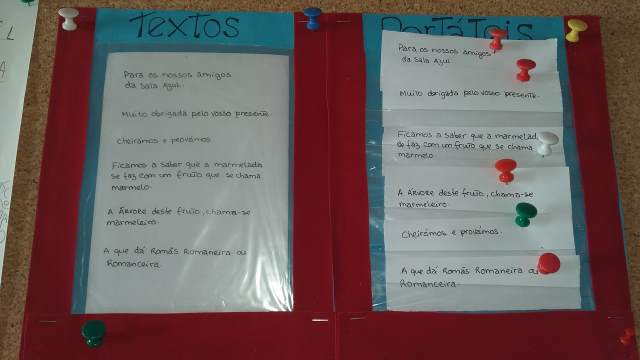 Textos
Para os nossos amigos
da Sala Azul.
Muito obrigada pelo vosso presente.
Cheirámos e provámos
Ficamos a saber que a marmelada
se faz com um fruto que se chama
marmelo.
A Árvore deste fruto, chama-se
marmeleiro.
A que dá Romãs Romaneira ou
Romanceira.
Portáteis
Para os nossos amigos
da Sala Azul.
Muito obrigada pelo vosso presente.
Ficamos a saber que a marmelad
se faz com um fruto que se chama
marmelo
A Árvore deste fruto, chama-se
marmeleiro.
Cheirámos e provámos.
A que dá Romãs Romaneira ou
Romanceira.